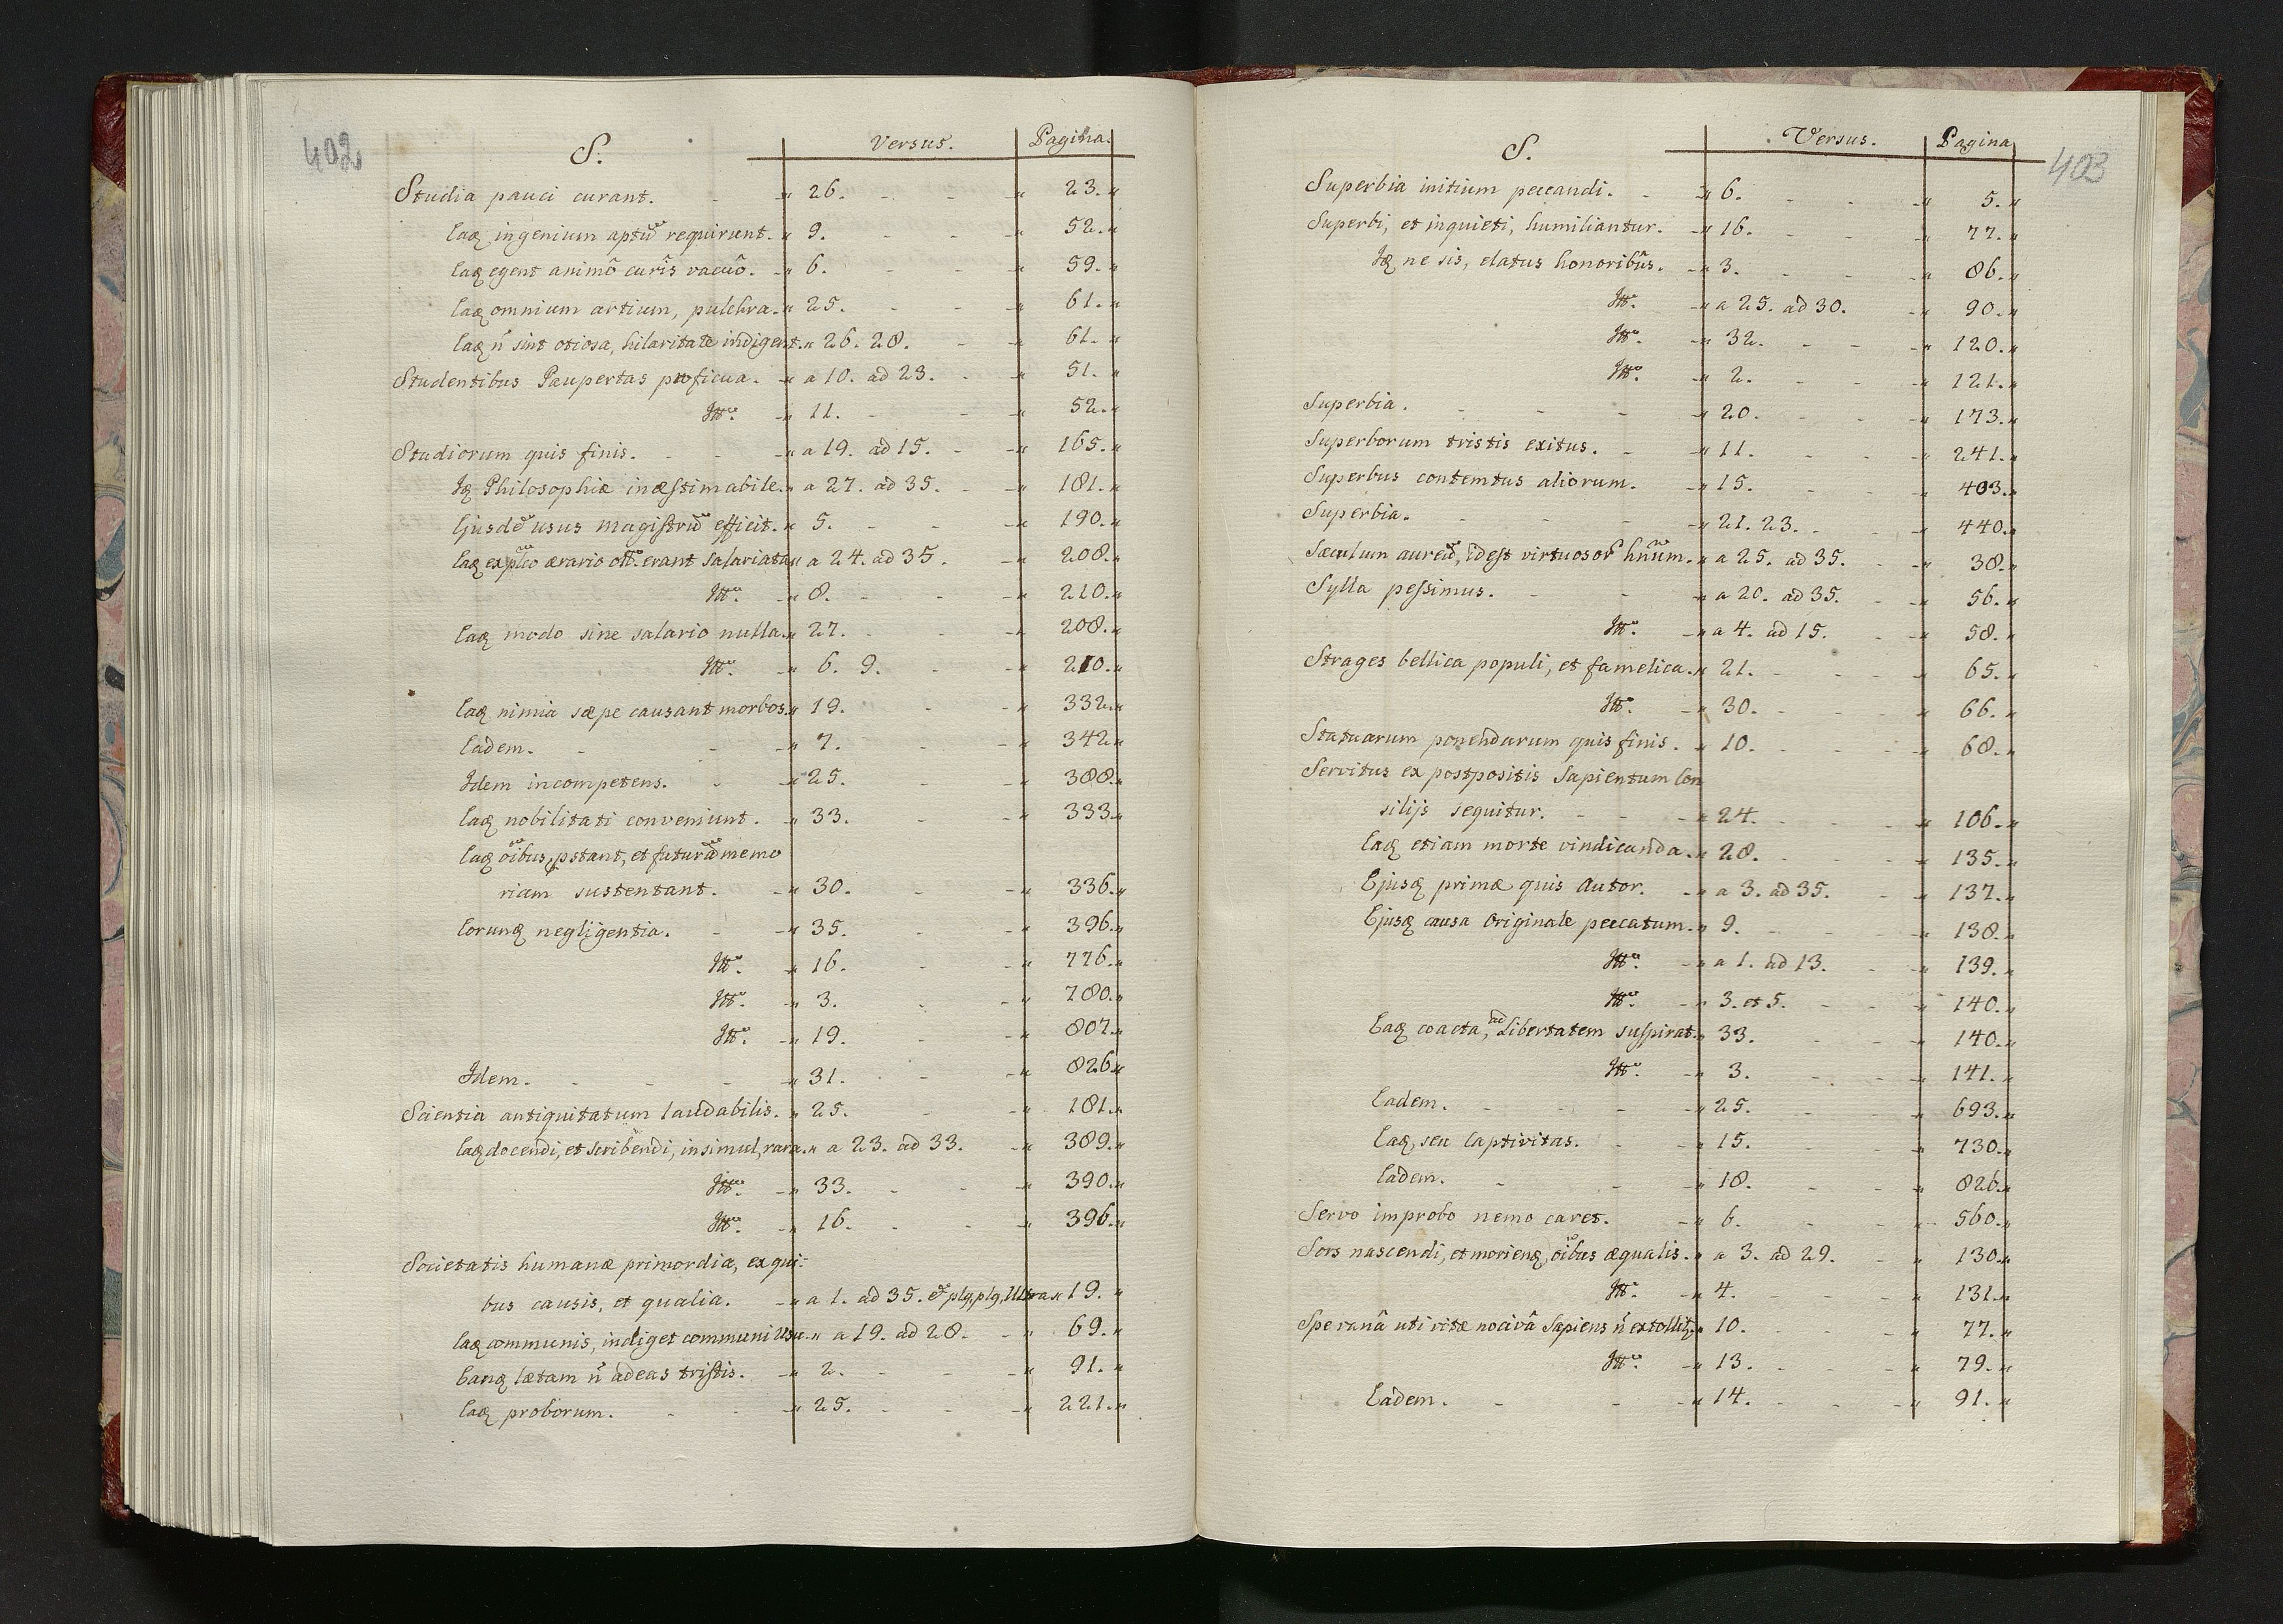 402
S. Versus. Pagina.
Studia pauci curant. - " 26. - - " 23. "
Eaq ingenium aptũ requirunt. " 9. - - " 52. "
Eaq egent animô curîs vacuô. - " 6. - - " 59. "
Eaq omnium artium, pulchra. " 25. - - " 61. "
Eaq ñ sint otiosa, hilaritate indigent. " 26. 28. - " 61. "
Studentibus Paupertas proficua. - " a 10. ad 23. - " 51. "
Itt. - " 11. - - " 52. "
Studiorum quis finis. - - " a 19. ad 15. - " 165. "
Iq Philosophiæ inæstimabile. " a 27. ad 35. - " 181. "
Ejusdẽ usus magistrũ efficit. " 5. - - " 190. "
Eaq ex plico ærario olt. erant salariata " a 24. ad 35. - " 208. "
Itt. - " 8. - - " 210. "
Eaq modo sine salario nulla. " 27. - - " 208. "
Itt. - " 6. 9. - " 210. "
Eaq nimia sæpe causant morbos. " 19. - " 332. "
Eadem. - - - " 7. - - " 342 "
Idem incompetens. - - " 25. - - " 388. "
Eaq nobilitati conveniunt. - " 33. - - " 333. "
Eaq oibus pstant, et futurã memo
riam sustentant. - " 30. - - " 336. "
Eorunq negligentia. - - " 35. - - " 396. "
Itt. - " 16. - - " 776. "
Itt. - " 3. - - " 780. "
Itt. - " 19. - - " 807. "
Idem. - - - " 31. - - " 826. "
Scientia antiquitatum laudabilis. - " 25. - " 181. "
Eaq docendi, et scribendi, insimul, rara. " a 23. ad 33. - " 389. "
Itt. - " 33. - - " 390. "
Itt. - " 16. - - " 396. "
Societatis humanæ primordia, ex qui-
bus causis, et qualia. - " a 1. ad 35. & plq, plq, Ultra " 19. "
Eaq communis, indiget communi Usu. " a 19. ad 28. - " 69. "
Eanq lætam ñ adeas tristis. - " 2. - - " 91. "
Eaq proborum. - - " 25. - - " 221. "
403
S. Versus. Pagina
Superbia initium peccandi. - " 6. - - " 5. "
Superbi, et inquieti, humiliantur. - " 16. - - " 77. "
Iq ne sis, elatus honoribûs. - " 3. - - " 86. "
Itt. - " a 25. ad 30. - " 90. "
Itt. - " 32. - - " 120. "
Itt. - " 2. - - " 121. "
Superbia. - - - " 20. - - " 173. "
Superborum tristis exitus. - " 11. - - " 241. "
Superbus contemtus aliorum. - " 15. - - " 403. "
Superbia. - - - " 21. 23. - " 440. "
Sæculum aureũ, idest virtuosor hñum. " a 25. ad 35. - " 38. "
Sylla pessimus. - - " a 20. ad 35. - " 56. "
Itt. - " a 4. ad 15. - " 58. "
Strages bellica populi, et famelica. " 21. - - " 65. "
Itt. - " 30. - - " 66. "
Statuarum ponendarum quis finis. - " 10. - - " 68. "
Servitus ex postpositis Sapientum Con
silijs sequitur. - - " 24. - - " 106. "
Eaq etiam morte vindicanda. " 28. - - " 135. "
Ejusq primæ quis Autor. - " a 3. ad 35. - " 137. "
Ejusq causa Originale peccatum. " 9. - - " 138. "
Itt. - " a 1. ad 13. - " 139. "
Itt. - " 3. et 5. - " 140. "
Eaq coacta, ad Libertatem suspirat. " 33. - - " 140. "
Itt. - " 3. - - " 141. "
Eadem. - - - " 25. - - " 693. "
Eaq, seu Captivitas. - " 15. - - " 730. "
Eadem. - - - " 18. - - " 826. "
Servo improbo nemo caret. - " 6. - - " 560. "
Sors nascendi, et morienq, oibus æqualis. " a 3. ad 29. - " 130. "
Itt. - " 4. - - " 131. "
Spe vanâ uti vitæ nocivâ Sapiens ñ extollitq. " 10. - - " 77. "
Itt. - " 13. - - " 79. "
Eadem. - - - " 14. - - " 91. "